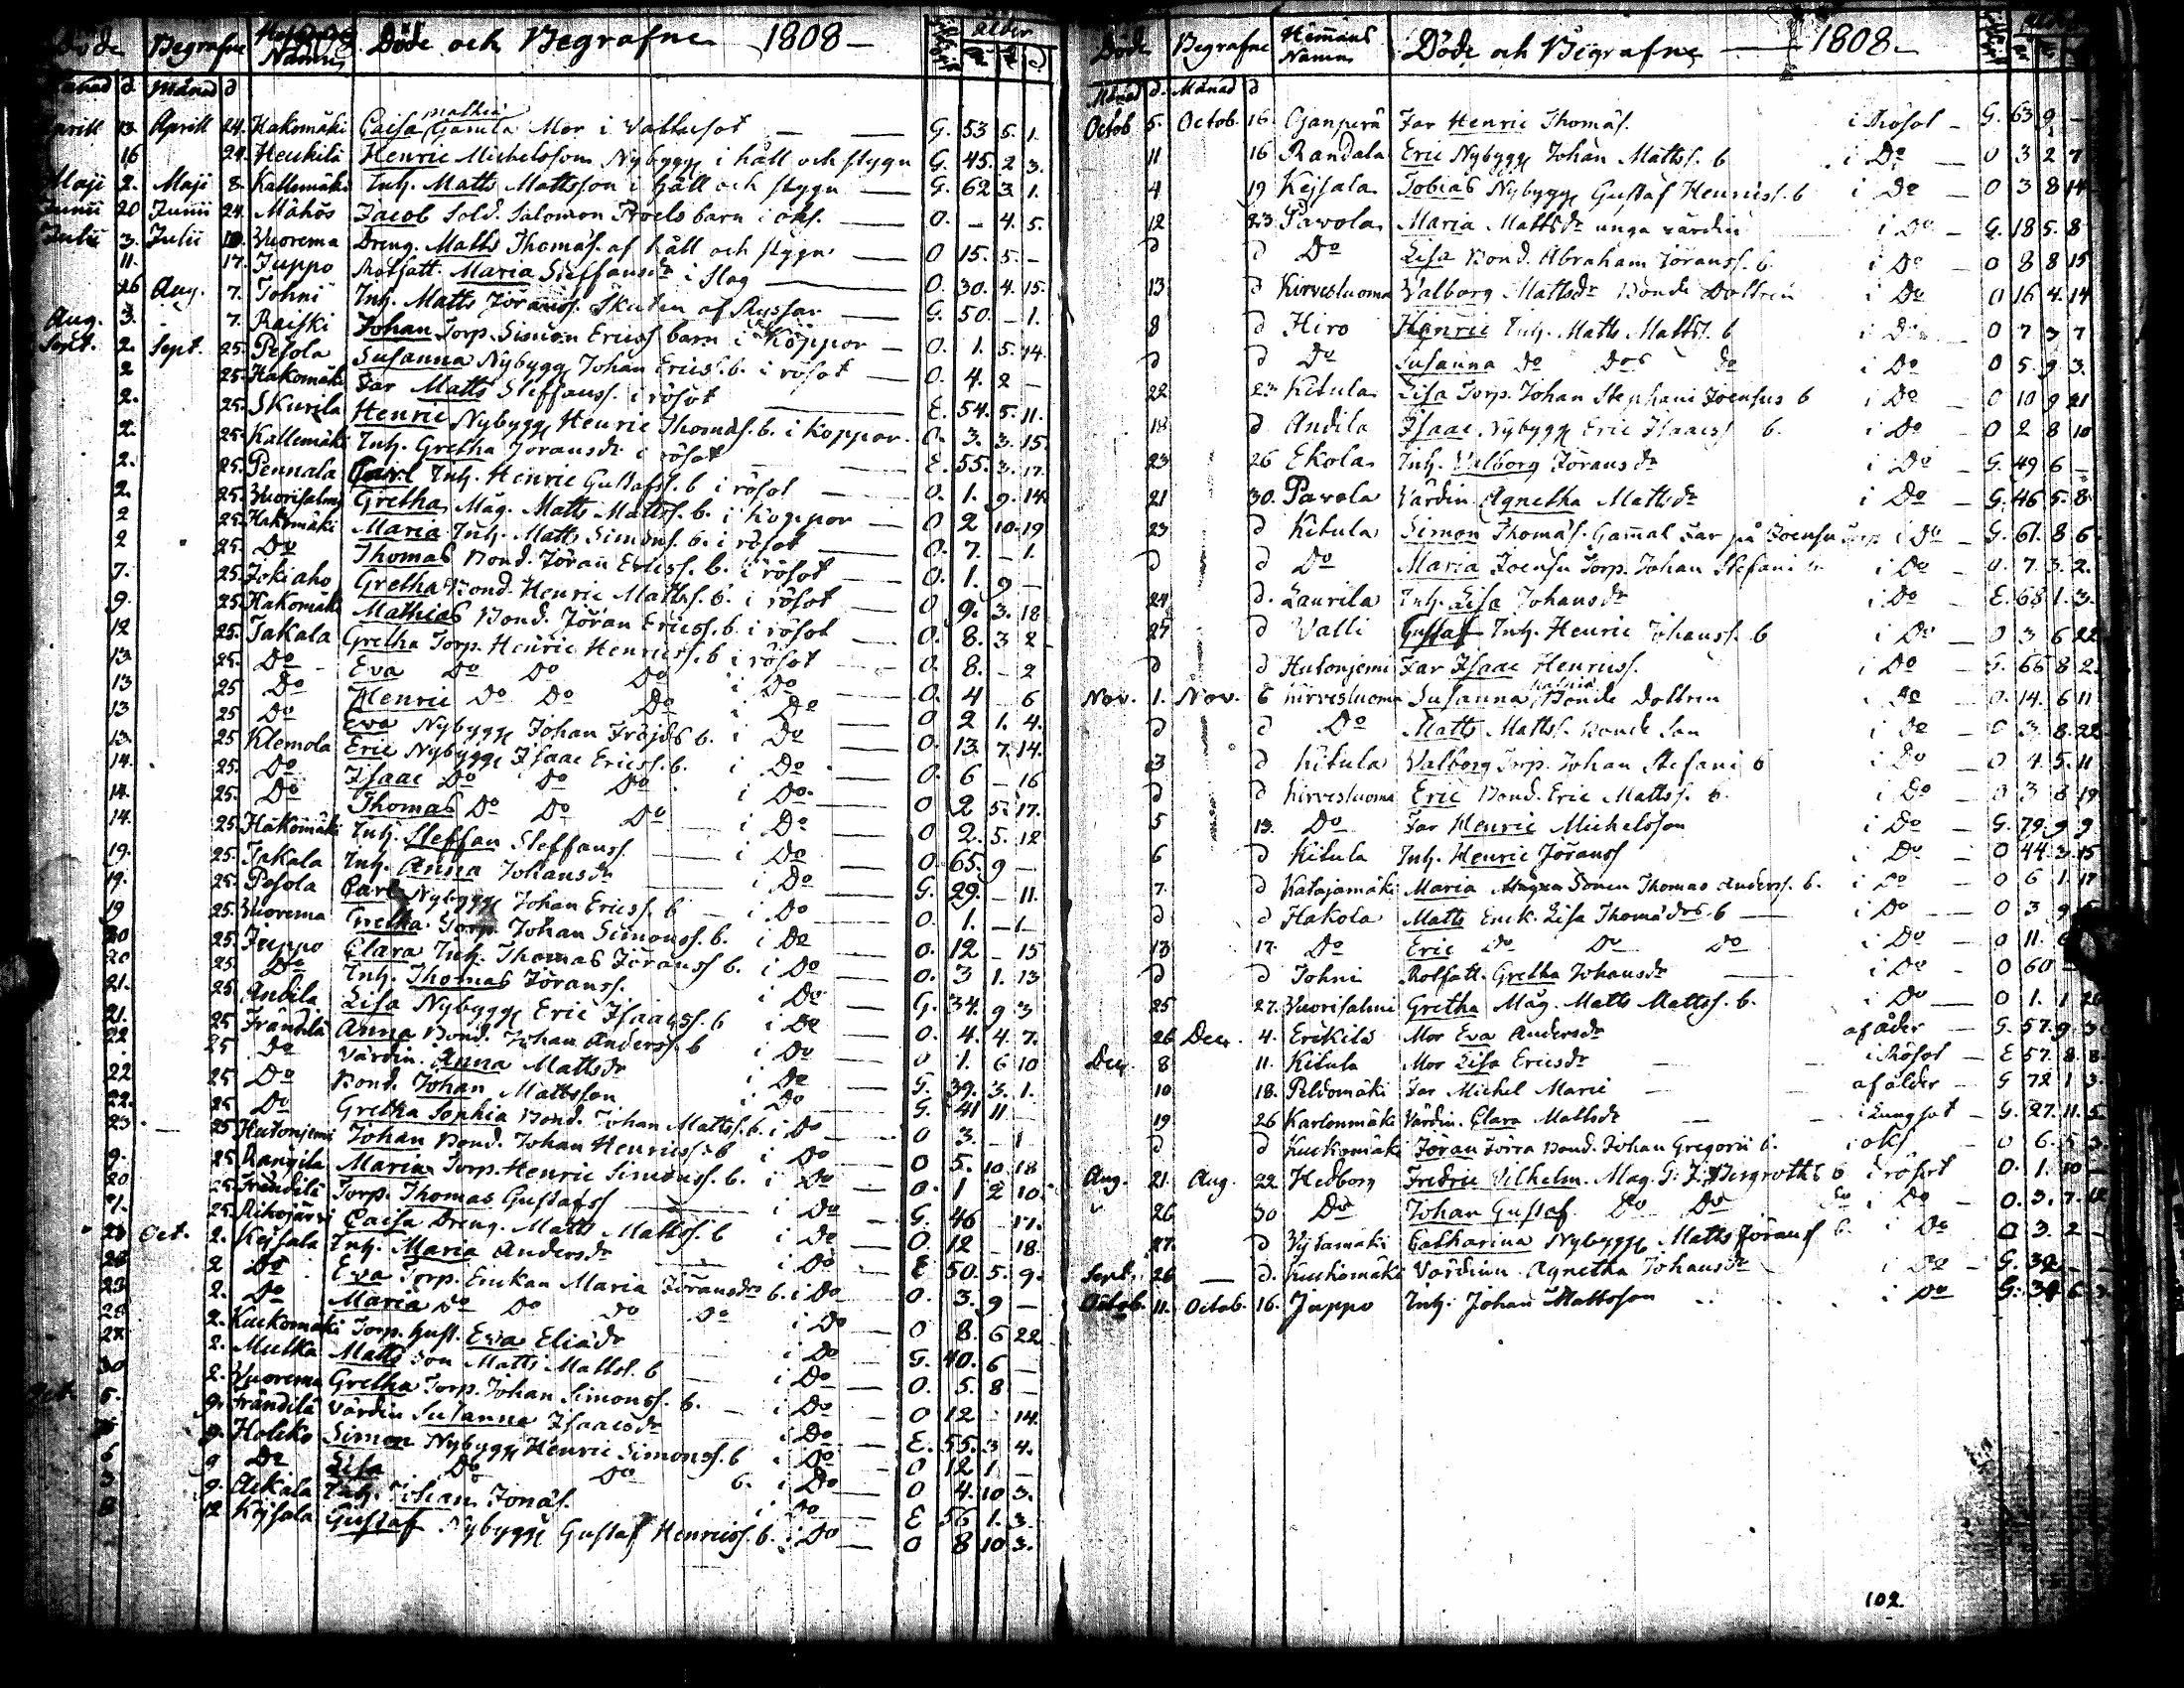 Döde Begrafne Hemans Namn Döde och Begrafne 1808 ålder
Månad d. Månad d
Aprill 13. Aprill 24. Hakomäki Caisa Gamla Mor i Vattusot G. 53 5. 1.
16 24. Heickilä Henric Michelsson Nybygg i håll och stygn G. 45. 2 3.
Maji 2. Maji 8. Kallemäki Inh. Matts Mattsson i håll och stygn G. 62 3 1.
Junii 20 Junii 24. Mähös Jacob Sold. Salomon Roels barn i oks. O. - 4. 5.
Julii 3. Julii 10. Vuorema Dreng. Matts Thomæs. af håll och stygn O 15. 5. -
11. 17. Juppo Rotfatt. Maria Steffansdr i Slag O. 30. 4. 15.
26 Aug. 7. Johni Inh. Matts Jöranss. Skuten af Ryssar G. 50. - 1.
Aug. 3. 7. Raiski Johan Torp. Simon Ericss barn i Koppor O. 1. 5. 14.
Sept. 2. Sept. 25. Pesola Susanna Nybygg Johan Ericss. b. i rösot O. 4. 2 -
2 25. Hakomäki Far Matts Steffanss. i rösot E. 54. 5. 11.
2. 25. Skurila Henric Nybygg Henric Thomæs. b. i Koppor. O. 3. 3. 15.
2. 25. Kallemäki Inh. Gretha Joransdr i rösot E. 55. 3. 17.
2. 25. Pennala Carl Inh. Henric Gustafss. b i rösot O. 1. 9. 14.
2. 25. Vuorisalmi Gretha Måg. Matts Mattss. b. i Koppor O 2 10. 19
2 25. Hakomäki Maria Inh. Matts Simons. b. i rösot O. 7. - 1.
2 25. Do Thomas Bond. Jöran Ericss. b. i rösot O. 1. 9 -
7. 25. Jokiaho Gretha Bond. Henric Mattss. b. i rösot O 9. 3. 18
9. 25. Hakomäki Mathias Bond. Jöran Ericss. b. i rösot O. 8. 3 2
12 25. Jakala Gretha Torp. Henric Henricss. b i rösot O. 8. - 2
13. 25. Do Eva Do Do Do i Do O. 4 - 6
13 25 Do Henric Do Do Do i Do O 2 1. 4.
13 25 Do Eva Nybygg Johan Fröjds b. i Do O. 13. 7. 14.
13. 25 Klemola Eric Nybygg Isaac Ericss. b. i Do O. 6 - 16
14. 25. Do Isaac Do Do Do i Do O 2 5. 17.
14. 25. Do Thomas Do Do Do i Do O 2. 5. 12
14. 25. Hakomäki Inh. Steffan Steffanss. i Do O. 65. 9 -
19. 25. Jakala Inh. Anna Johansdr i Do G. 29. - 11.
19. 25. Pesola Carl Nybygg Johan Ericss. b i Do O. 1. - 1
19 25. Vuorema Gretha Torp. Johan Simonss. b. i Do O. 12 - 15
20 25. Juppo Clara Inh. Thomas Jöranss b. i Do O. 3 1. 13
20 25. Do Inh. Thomas Jöranss. i Do G. 34. 9 3
21. 25. Andila Lisa Nybygg Eric Isaacss. b i Do O. 4. 4 7.
21. 25 Frändilä Anna Bond. Johan Anderss. b i Do O 1. 6 10
22 25 Do Värdin. Anna Mattsdr i Do G. 39. 3. 1.
22 25 Do Bond. Johan Mattsson i Do G. 41 11 -
22. 25 Do Gretha Sophia Bond. Johan Mattss. b. i Do O 3. - 1
23. 25 Hutonjemi Johan Bond. Johan Henricss. b i Do O 5. 10 18
9. 25 Kangila Maria Torp. Henric Simonss. b. i Do O. 1 2 10.
20 25. Frändilä Torp. Thomas Gustafss i Do G. 46 - 17.
21. 25. Caisa Dreng. Matts Mattss. b i Do O. 12 - 18
Oct. 2. Kejsala Inh. Maria Andersdr i Do E 50. 5. 9.
2 Do Eva Torp. Enckan Maria Jöransdrs b. i Do O. 3. 9 -
23 2. Do Maria Do Do Do Do i Do O 8. 6 22
2. Kuckomäki Torp. hust. Eva Eliædr i Do G. 40. 6 -
2. Mulka Matts son Matts Mattss. b i Do O. 5. 8 -
30 2. Vuorema Gretha Torp. Johan Simonss. b. i Do O 12 - 14.
Oct. 5. 9. Frändilä Värdin Susanna Isaacsdr i Do E. 55. 3 4.
9. Holcko Simon Nybygg Henric Simonss. b i Do O 12 1 -
6 9 Do Lisa Do Do b. i Do O 4. 10 3.
3 9. Inh. Johan Jonæs. i Do E 56 1. 3
8 12 Kejsala Gustaf Nybygg Gustaf Henricss. b. i Do O 8 10 3.
Döde Begrafne Hemans Namn Döde och Begrafne 1808
Månad d. Månad d
Octob. 5. Octob. 16. Ojanperä Far Henric Thomæs. i Rösot G. 63 9 -
11 16 Randala Eric Nybygg Johan Mattss. b i Do O 3 2 7
4 19 Kejsala Tobias Nybygg Gustaf Henricss. b i Do O 3 8 14
12 23. Pavola Maria Mattsdr unga värdin i Do G. 18 5. 8
d d Do Lisa Bond. Abraham Jöranss. b. i Do O 8 8 15
13 d Kirvesluoma Valborg Mattsdr Bonde Dottren i Do O 16 4. 14
8 d Hiro Henric Inh. Matts Mattss. b i Do O 7 3 7
d d Do Susanna do Dos do i Do O 5. 9. 3.
22 23 Kitula Lisa Torp. Johan Stephani Joensus b i Do O 10 9 21
18 d Andila Isaac Nybygg Eric Isaacss b. i Do O 2 8 10
23 26 Ekola Inh. Valborg Jöransdr i Do G. 49 6 -
21 30. Pavola Värdin Agnetha Mattsdr i Do G. 46 5. 8
23 d Kitula Simon Thomæs. Gammal Far på Joensu Torp i Do G. 61. 8 6
d d Do Maria Joensu Torp. Johan Stefani b. i Do O. 7. 3. 2.
24 d. Laurila Inh. Lisa Johansdr i Do E. 68 1. 3.
27 d Valli Gustaf Inh. Henric Johanss. b i Do O 3 6 22
d d Hutonjemi Far Isaac Henricss. i Do G. 66 8 2
Nov. 1. Nov. 6 Kirvesluoma Susanna Bonde Dottren i Do O. 14. 6 11
d d Do Matts Mattss. Bonde Son i Do O 3. 8. 22
3 d Kitula Valborg Torp. Johan Stefani b i Do O 4. 5. 11
d d Kirvesluoma Eric Bond. Eric Mattss. b. i Do O 3 8 19
5 13. Do Far Henric Michelsson i Do G. 79. 9 9
6 d Kitula Inh. Henric Jöranss i Do O 44 3. 15
7. d Katajamäki Maria Sonen Thomas Anderss. b. i Do O 6 1. 17
d d Hakola Matts Enck. Lisa Thomædrs b i Do O 3 9
13 17. Do Eric Do Do Do i Do O 11.
d d Johni Rotfatt. Gretha Johansdr i Do O 60 -
25 27. Vuorisalmi Gretha Måg. Matts Mattss. b. i Do O 1. 1 26
26 Decr. 4. Erickilä Mor Eva Andersdr af ålder G. 57. 9. 3.
Decr. 8 11. Kitula Mor Lisa Ericsdr i Rösot E 57. 8. 8.
10 18. Peldomäki Far Michel Marci af ålder G 72 1 3.
19 26 Karlonmäki Värdin. Clara Mattsdr i Lungsot G. 27. 11. 5.
d d Kuckomäki Jöran Jörra Bond. Johan Gregorii b. i oks O 6. 5 3.
Aug. 21. Aug. 22 Hedborg Fredric Vilhelm. Mag. G. J. Bergroths b i rösot O. 1. 10 -
26 30 Do Johan Gustaf. Do Do Do i Do O. 3. 7. 12
27. d Vijtamäki Catharina Nybygg Matts Jöranss b. i Do O 3. 2 -
Sept. 26 d. Kuckomäki Värdinn. Agnetha Johansdr i Do G. 32 - -
Octob. 11. Octob. 16. Juppo Inh. Johan Mattsson i Do G. 34 6 3
102.